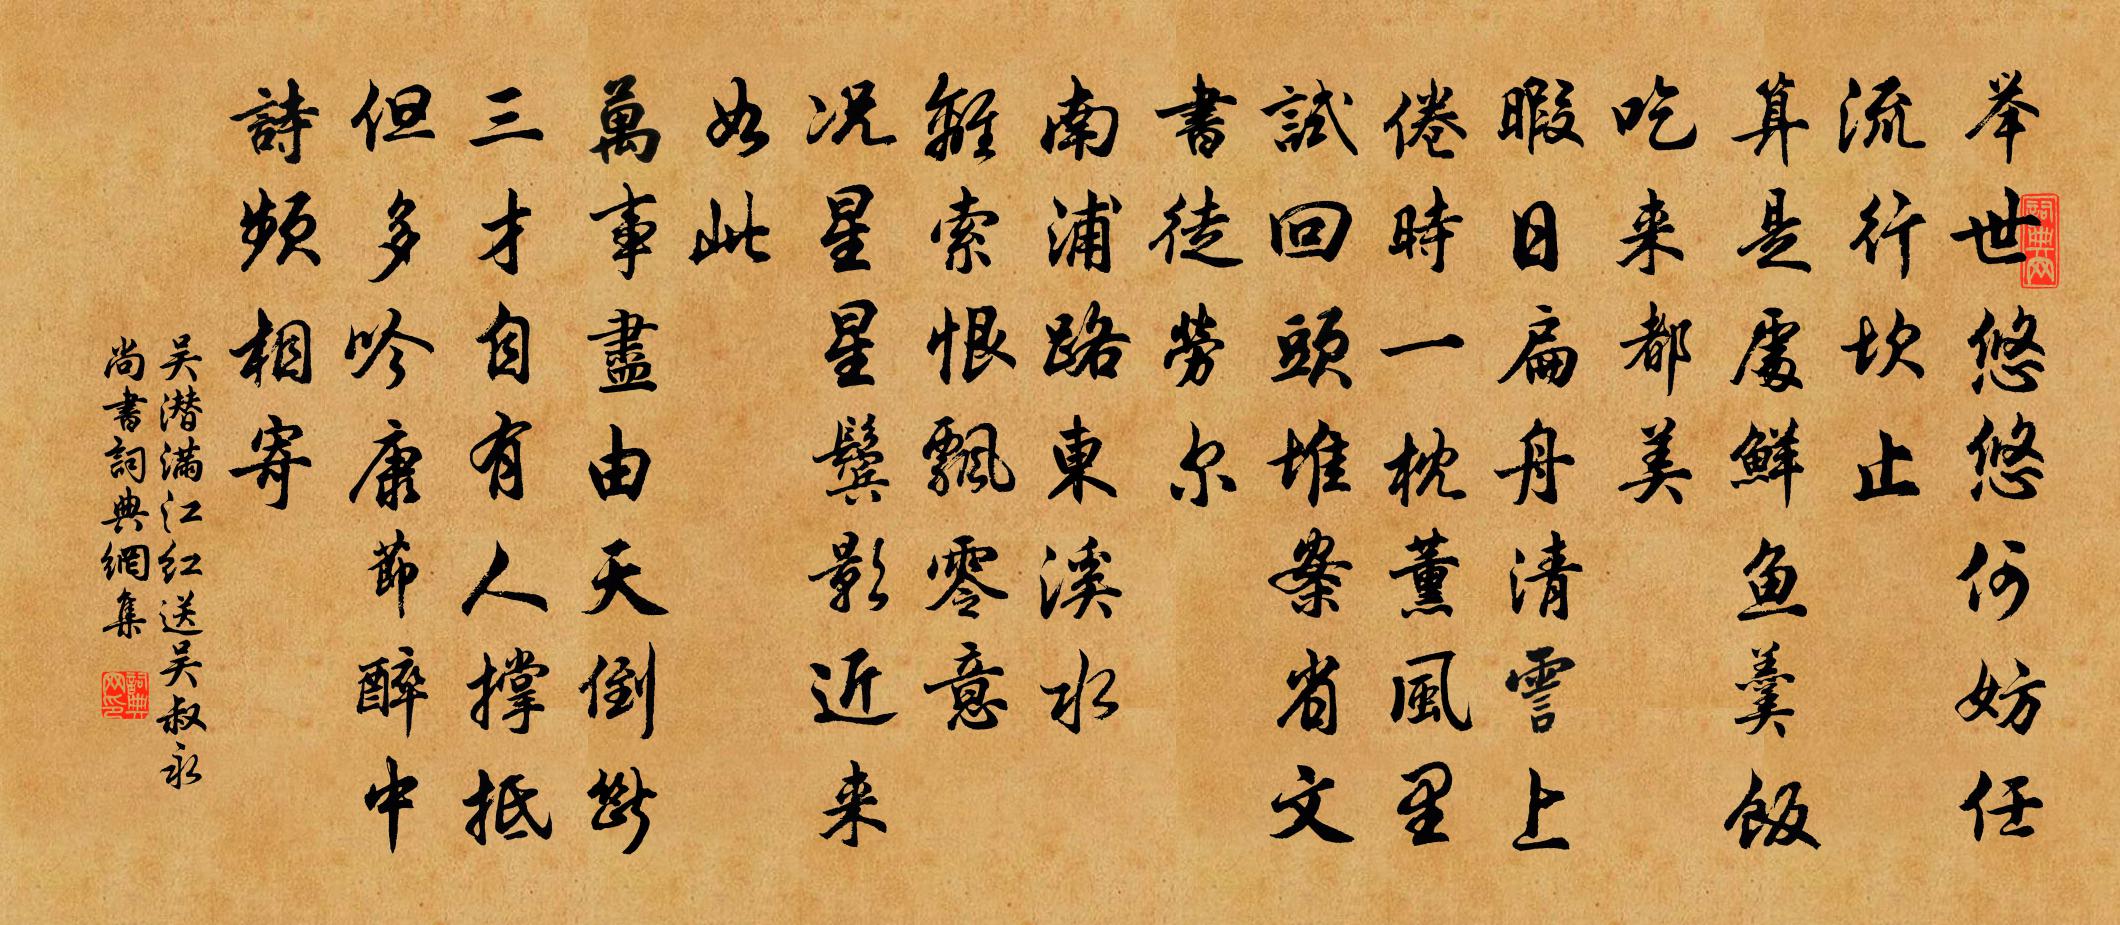 举世悠悠何妨任
流行坎止
算是處鮮鱼羹飯
吃来都美
暇日扁舟清霅上
倦時一枕薰風里
試回頭堆案省文
書徒勞尔
南浦路東溪水
離索恨飄零意
况星星鬓影近来
如此
萬事盡由天倒斷
三才自有人撑抵
但多吟康節醉中
詩頻相寄
吴潜满江红送吴叔永
尚書詞典網集
詞典网
詞典网印